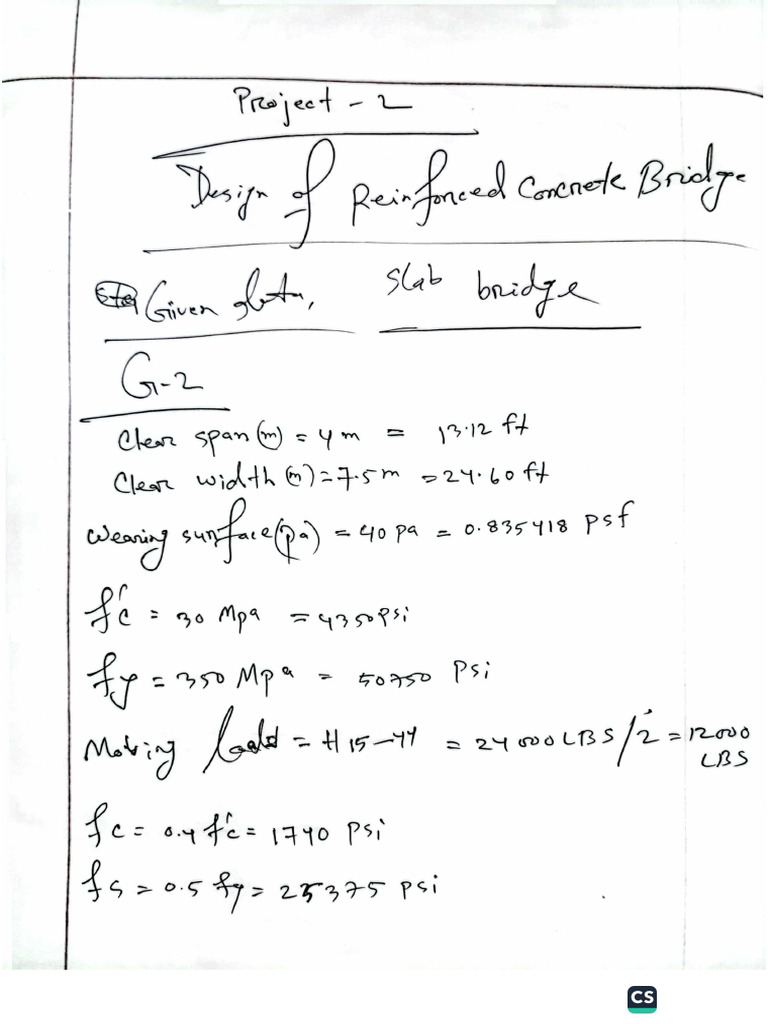 Project - 2
Design of Reinforced Concrete Bridge
Given data, Slab bridge
G-2
Clear span (m) = 4 m = 13.12 ft
Clear width (m) = 7.5 m = 24.60 ft
Wearing surface (pa) = 40 pa = 0.835418 psf
f'c = 30 Mpa = 4350 psi
fy = 350 Mpa = 50750 Psi
Moving Load = H15-44 = 24000 LBS/2 = 12000 LBS
fc = 0.4 f'c = 1740 psi
fs = 0.5 fy = 25375 psi
CS